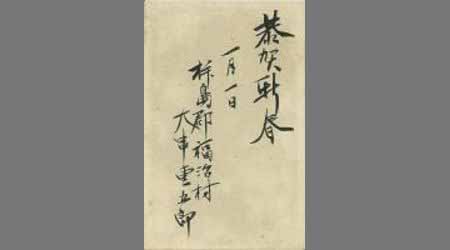 恭賀新春
一月一日
杵島郡福治村
大串 五郎